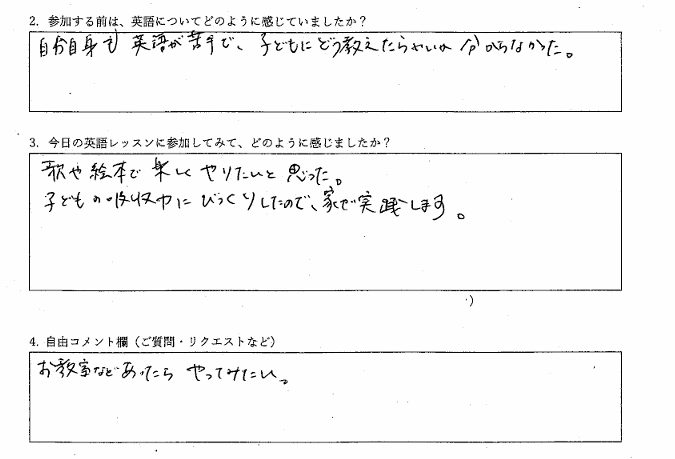 2. 参加する前は、英語についてどのように感じていましたか?
自分自身も英語が苦手で、子どもにどう教えたらいいの分からなかった。
3. 今日の英語レッスンに参加してみて、どのように感じましたか?
歌や絵本で楽しくやりたいと思った。
子どもの吸収力にびっくりしたので、家で実践します。
4. 自由コメント欄(ご質問・リクエストなど)
お教室などあったらやってみたい。